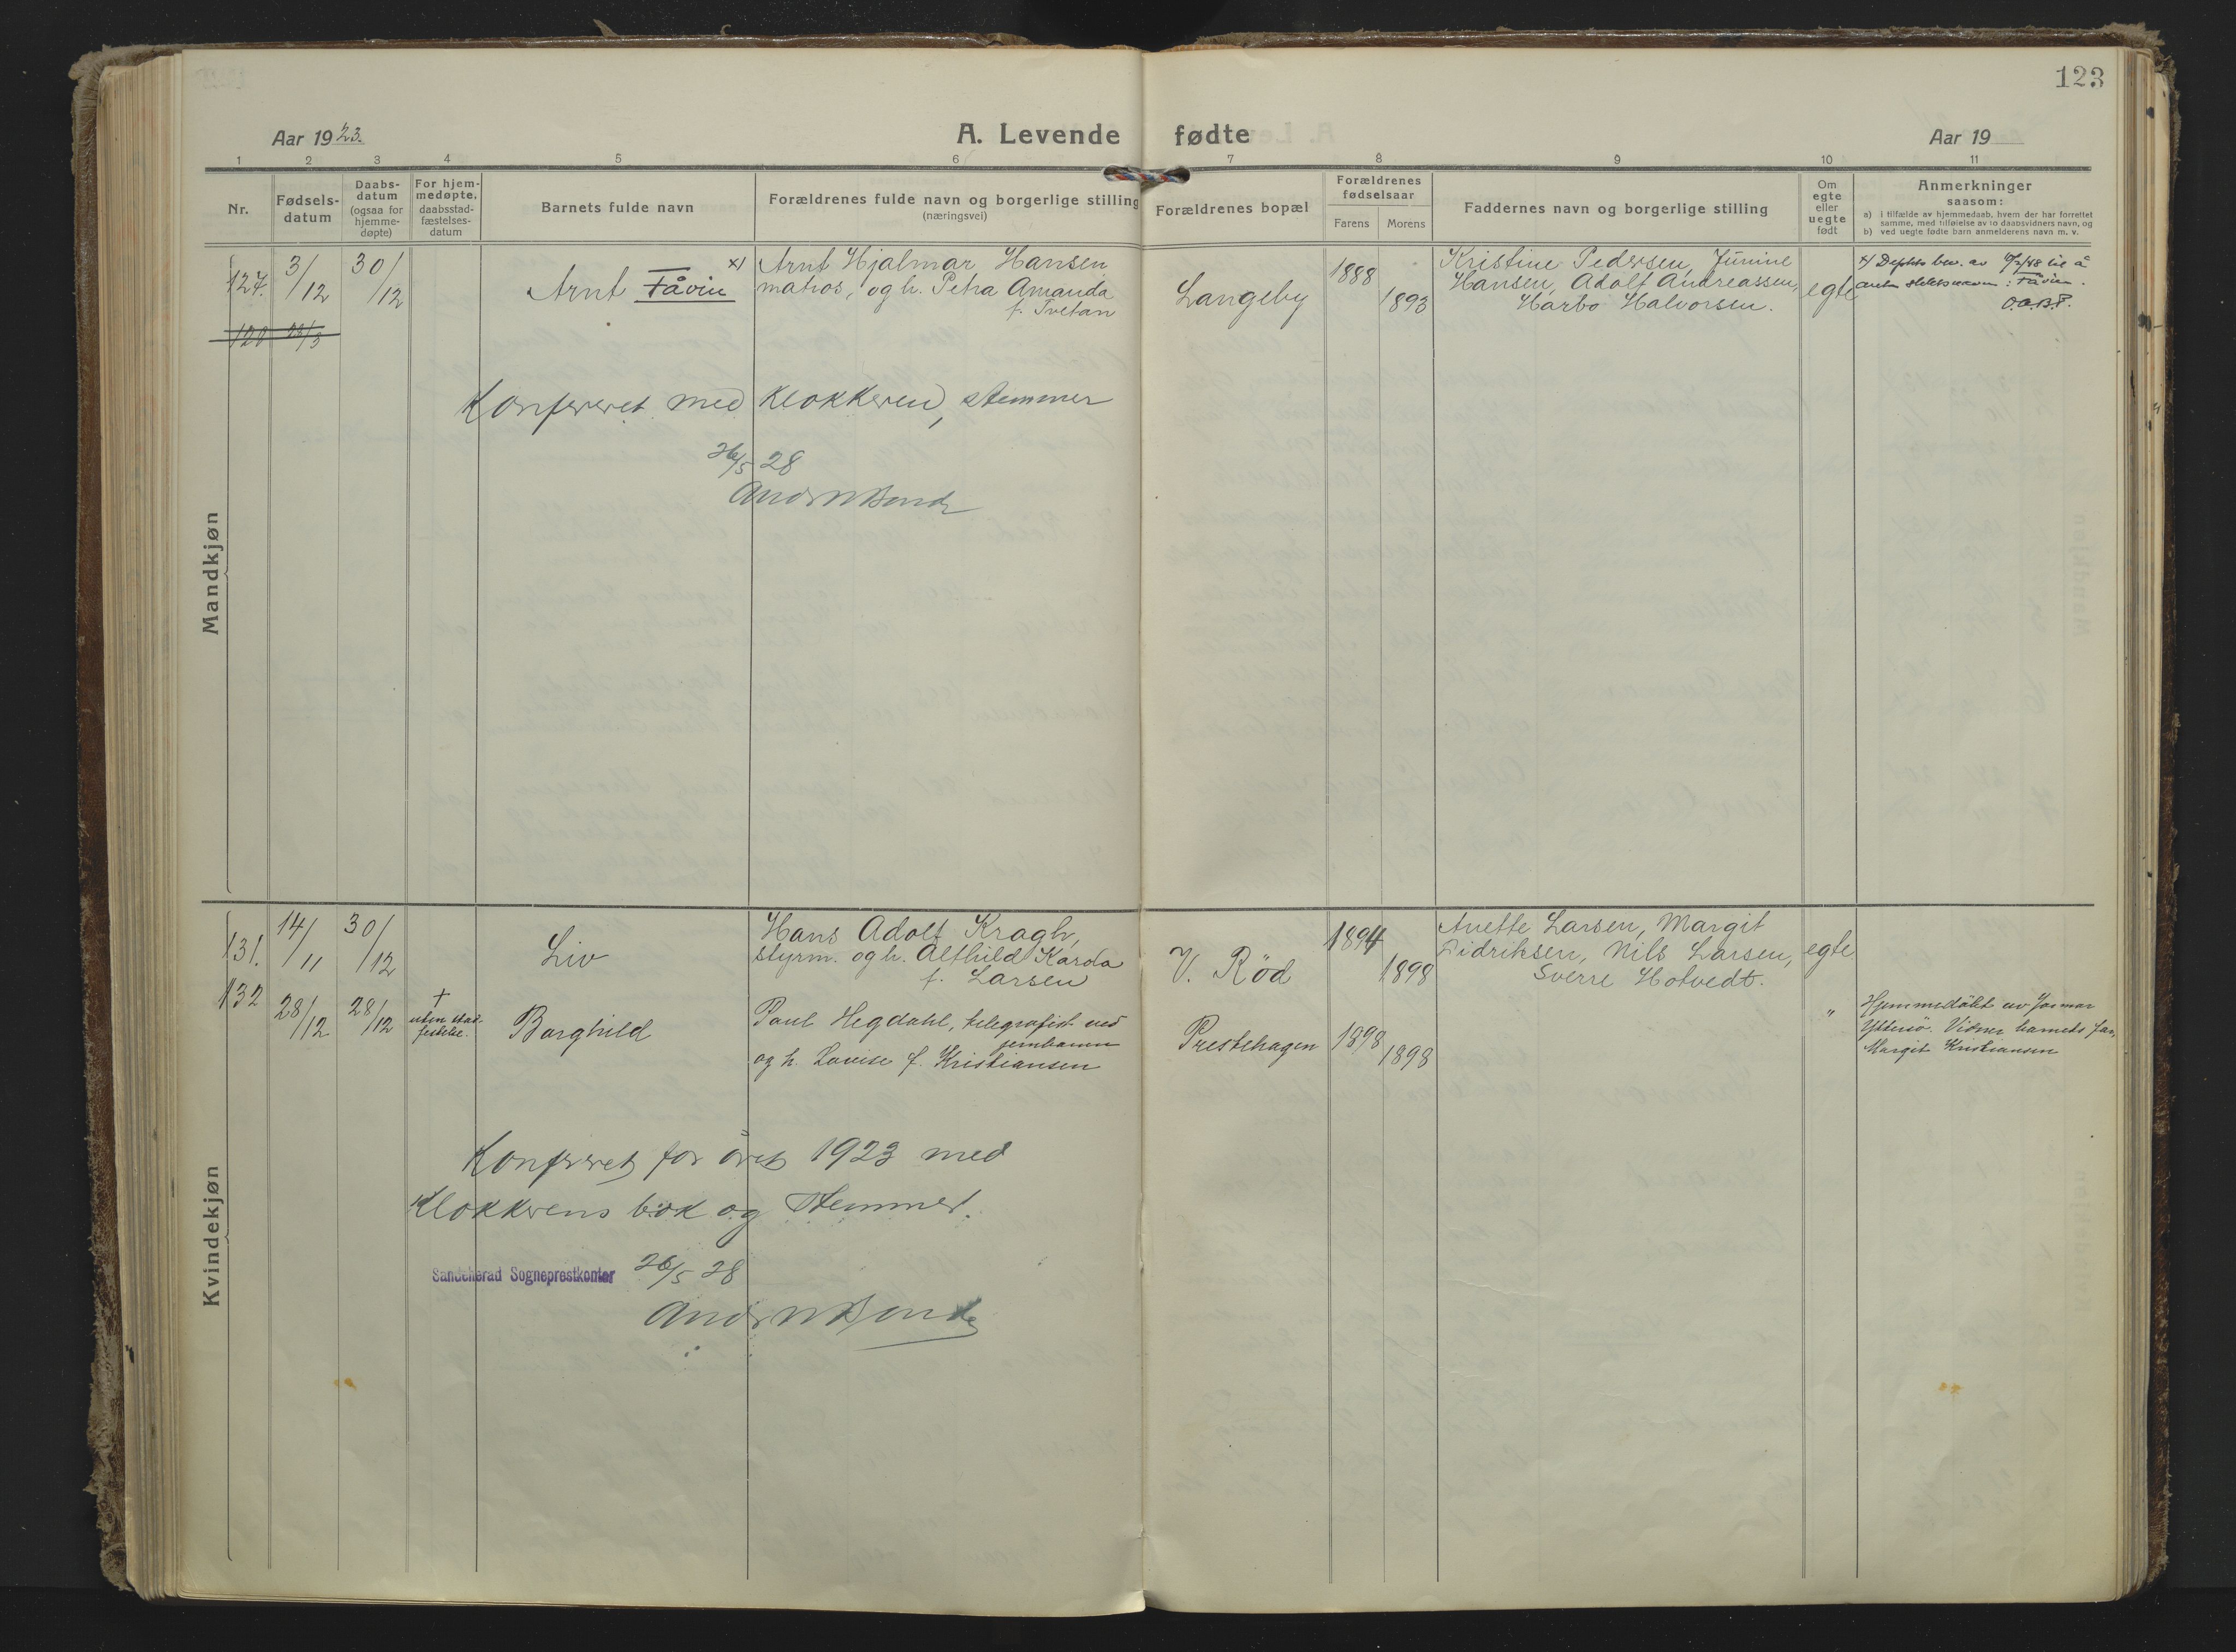 123
Aar 1923.
A. Levende fødte
Aar 19
1 2 3 4 5 6 7 8 9 10 11
Nr.
Fødsels-
datum
Daabs-
datum
(ogsaa for
hjemme-
døpte)
For hjem-
medøpte,
daabsstad-
fæstelses-
datum
Barnets fulde navn
Forældrenes fulde navn og borgerlige stilling
(næringsvei)
Forældrenes bopæl
Forældrenes
fødselsaar
Farens Morens
Faddernes navn og borgerlige stilling
Om
egte
eller
uegte
født
Anmerkninger
saasom:
a) i tilfælde av hjemmedaab, hvem der har forrettet
samme, med tilføielse av to daabsvidners navn, og
b) ved uegte fødte barn anmelderens navn m. v.
Mandkjøn
127.
3/12
30/12
Arnt Fåvin x)
Arnt Hjalmar Hansen
matros, og h. Petra Amanda
f. Tvetan
Langeby
1888
1893
Kristine Pedersen, Junine
Hansen, Adolf Andreassen,
Harbo Halvorsen.
egte
x) Depts bev. av til å
anta slektsnavn: Fåvin.
120 23/3
Konfereret med Klokkeren, stemmer
26/5 28
Kvindekjøn
131.
14/11
30/12
Liv
Hans Adolf Kragh,
styrm. og h. Alfhild Karda
f. Larsen
V. Röd
1894
1898
Anette Larsen, Margit
Didriksen, Nils Larsen,
Sverre Hotvedt.
egte
132
28/12
28/12
†
uten stad-
festelse.
Borghild
Paul Hegdahl, telegrafist ved
jernbanen
og h. Lovise f. Kristiansen
Prestehagen
1898
1898
"
Hjemmedöbt av
Ytterö. Vidner barnets far,
Margit Kristiansen
Konfereret for året 1923 med
Klokkerens bok og stemmer.
Sandeherad Sogneprestkontor
26/5 28